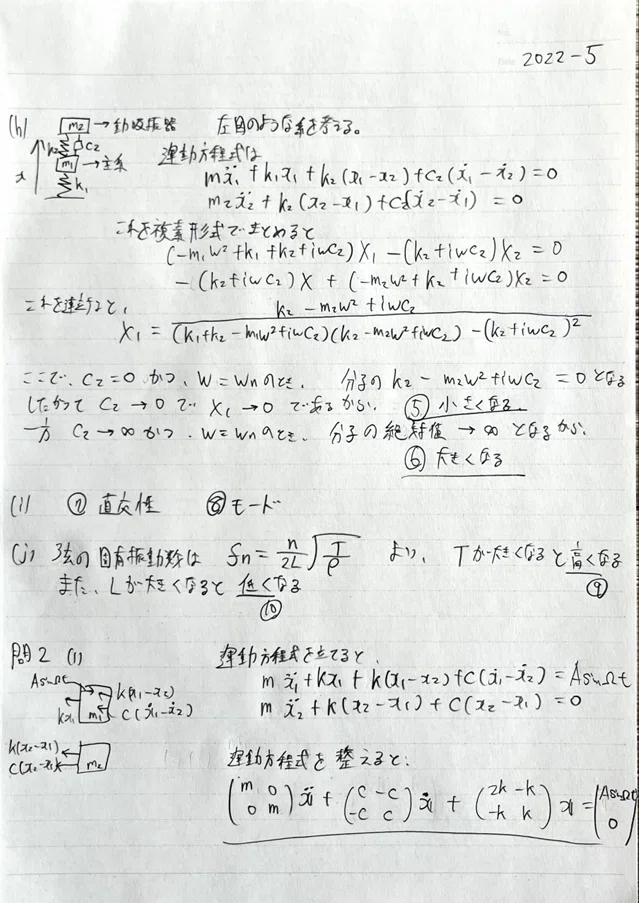 2022-5
(h) m2 →動吸振器 左図のような系を考える。
k2 c2 m1 →主系 k1 x
運動方程式は
mẍ1 + k1x1 + k2(x1-x2) + c2(ẋ1-ẋ2) = 0
m2ẍ2 + k2(x2-x1) + c2(ẋ2-ẋ1) = 0
これを複素形式でまとめると
(-m1w²+k1+k2+iwc2)X1 - (k2+iwc2)X2 = 0
-(k2+iwc2)X + (-m2w²+k2+iwc2)X2 = 0
これを連立すると,
X1 = (k2-m2w²+iwc2) / ((k1+k2-m1w²+iwc2)(k2-m2w²+iwc2) - (k2+iwc2)²)
ここで、c2=0 かつ、w=wnのとき、分子の k2-m2w²+iwc2 = 0 となる
したがって c2→0 で X1→0 であるから、⑤ 小さくなる。
一方 c2→∞ かつ、w=wnのとき、分子の絶対値→∞ となるから、
⑥ 大きくなる
(i) ⑦ 直交性 ⑧ モード
(j) 弦の固有振動数は fn = n/2L √(T/ρ) より、Tが大きくなると高くなる ⑨
また、Lが大きくなると 低くなる
⑩
問2 (1) 運動方程式を立てると、
AsinΩt k(x1-x2) kx1 m1 c(ẋ1-ẋ2)
m ẍ1 + kx1 + k(x1-x2) + c(ẋ1-ẋ2) = AsinΩt
m ẍ2 + k(x2-x1) + c(x2-x1) = 0
k(x2-x1) m2
運動方程式を整えると、
(m 0; 0 m)ẍ + (c -c; -c c)ẋ + (2k -k; -k k)x = (AsinΩt; 0)